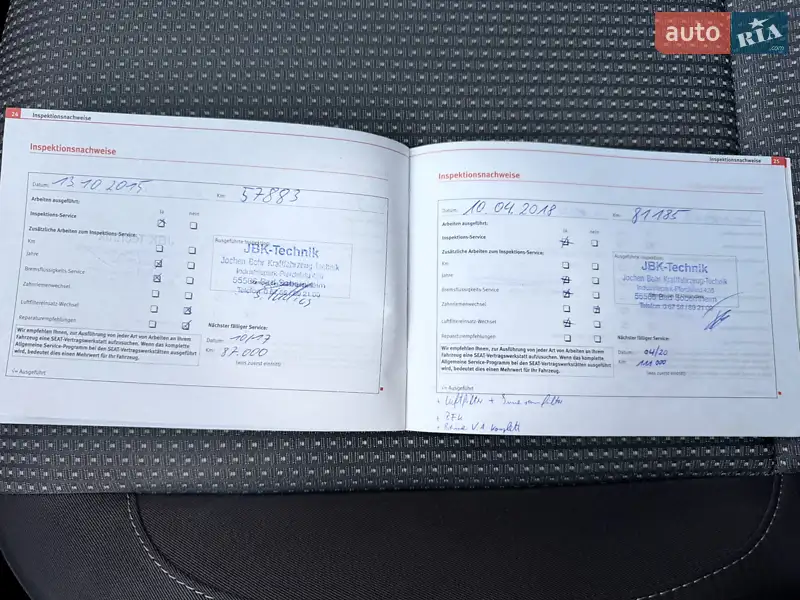 auto RIA.com
24 Inspektionsnachweise
Inspektionsnachweise
Datum: 13.10.2015 Km: 57883
Arbeiten ausgeführt: ja nein
Inspektions-Service
Zusätzliche Arbeiten zum Inspektions-Service:
Km
Jahre
Bremsflüssigkeits-Service
Zahnriemenwechsel
Luftfiltereinsatz-Wechsel
Reparaturempfehlungen
Ausgeführte Inspektion:
JBK-Technik
Jochen Bohr Kraftfahrzeug-Technik
55566 Bad Sobernheim
Wir empfehlen Ihnen, zur Ausführung von jeder Art von Arbeiten an Ihrem
Fahrzeug eine SEAT-Vertragswerkstatt aufzusuchen. Wenn das komplette
Allgemeine Service-Programm bei den SEAT-Vertragswerkstätten ausgeführt
wird, bedeutet dies einen Mehrwert für Ihr Fahrzeug.
Nächster fälliger Service:
Datum: 10/17
Km: 87.000
(was zuerst eintritt)
= Ausgeführt
Inspektionsnachweise 25
Inspektionsnachweise
Datum: 10.04.2018 Km: 81185
Arbeiten ausgeführt: ja nein
Inspektions-Service
Zusätzliche Arbeiten zum Inspektions-Service:
Km
Jahre
Bremsflüssigkeits-Service
Zahnriemenwechsel
Luftfiltereinsatz-Wechsel
Reparaturempfehlungen
Ausgeführte Inspektion:
JBK-Technik
Jochen Bohr Kraftfahrzeug-Technik
55566 Bad Sobernheim
Wir empfehlen Ihnen, zur Ausführung von jeder Art von Arbeiten an Ihrem
Fahrzeug eine SEAT-Vertragswerkstatt aufzusuchen. Wenn das komplette
Allgemeine Service-Programm bei den SEAT-Vertragswerkstätten ausgeführt
wird, bedeutet dies einen Mehrwert für Ihr Fahrzeug.
Nächster fälliger Service:
Datum: 04/20
Km: 111.000
(was zuerst eintritt)
= Ausgeführt